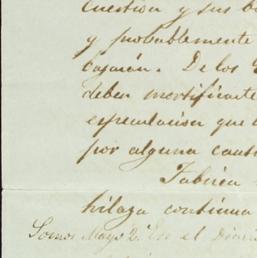 cuestion y sus
y probablemente
cajarán. De los
deben mortificarte
especulacion que
por alguna
Fabrica
hilaza continua
Mayo 2. En el Diario